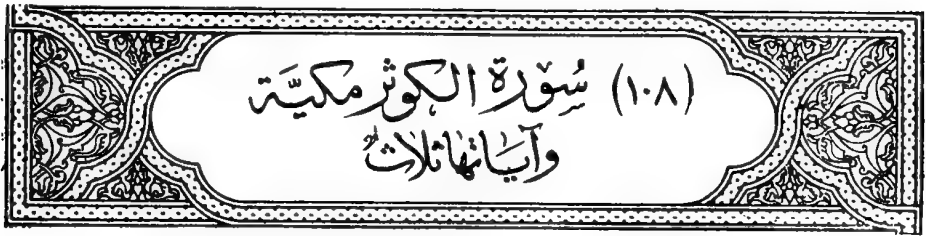 (١٠٨) سُوْرَة الكوثر مكيَّة
وآيَاتها ثلاث